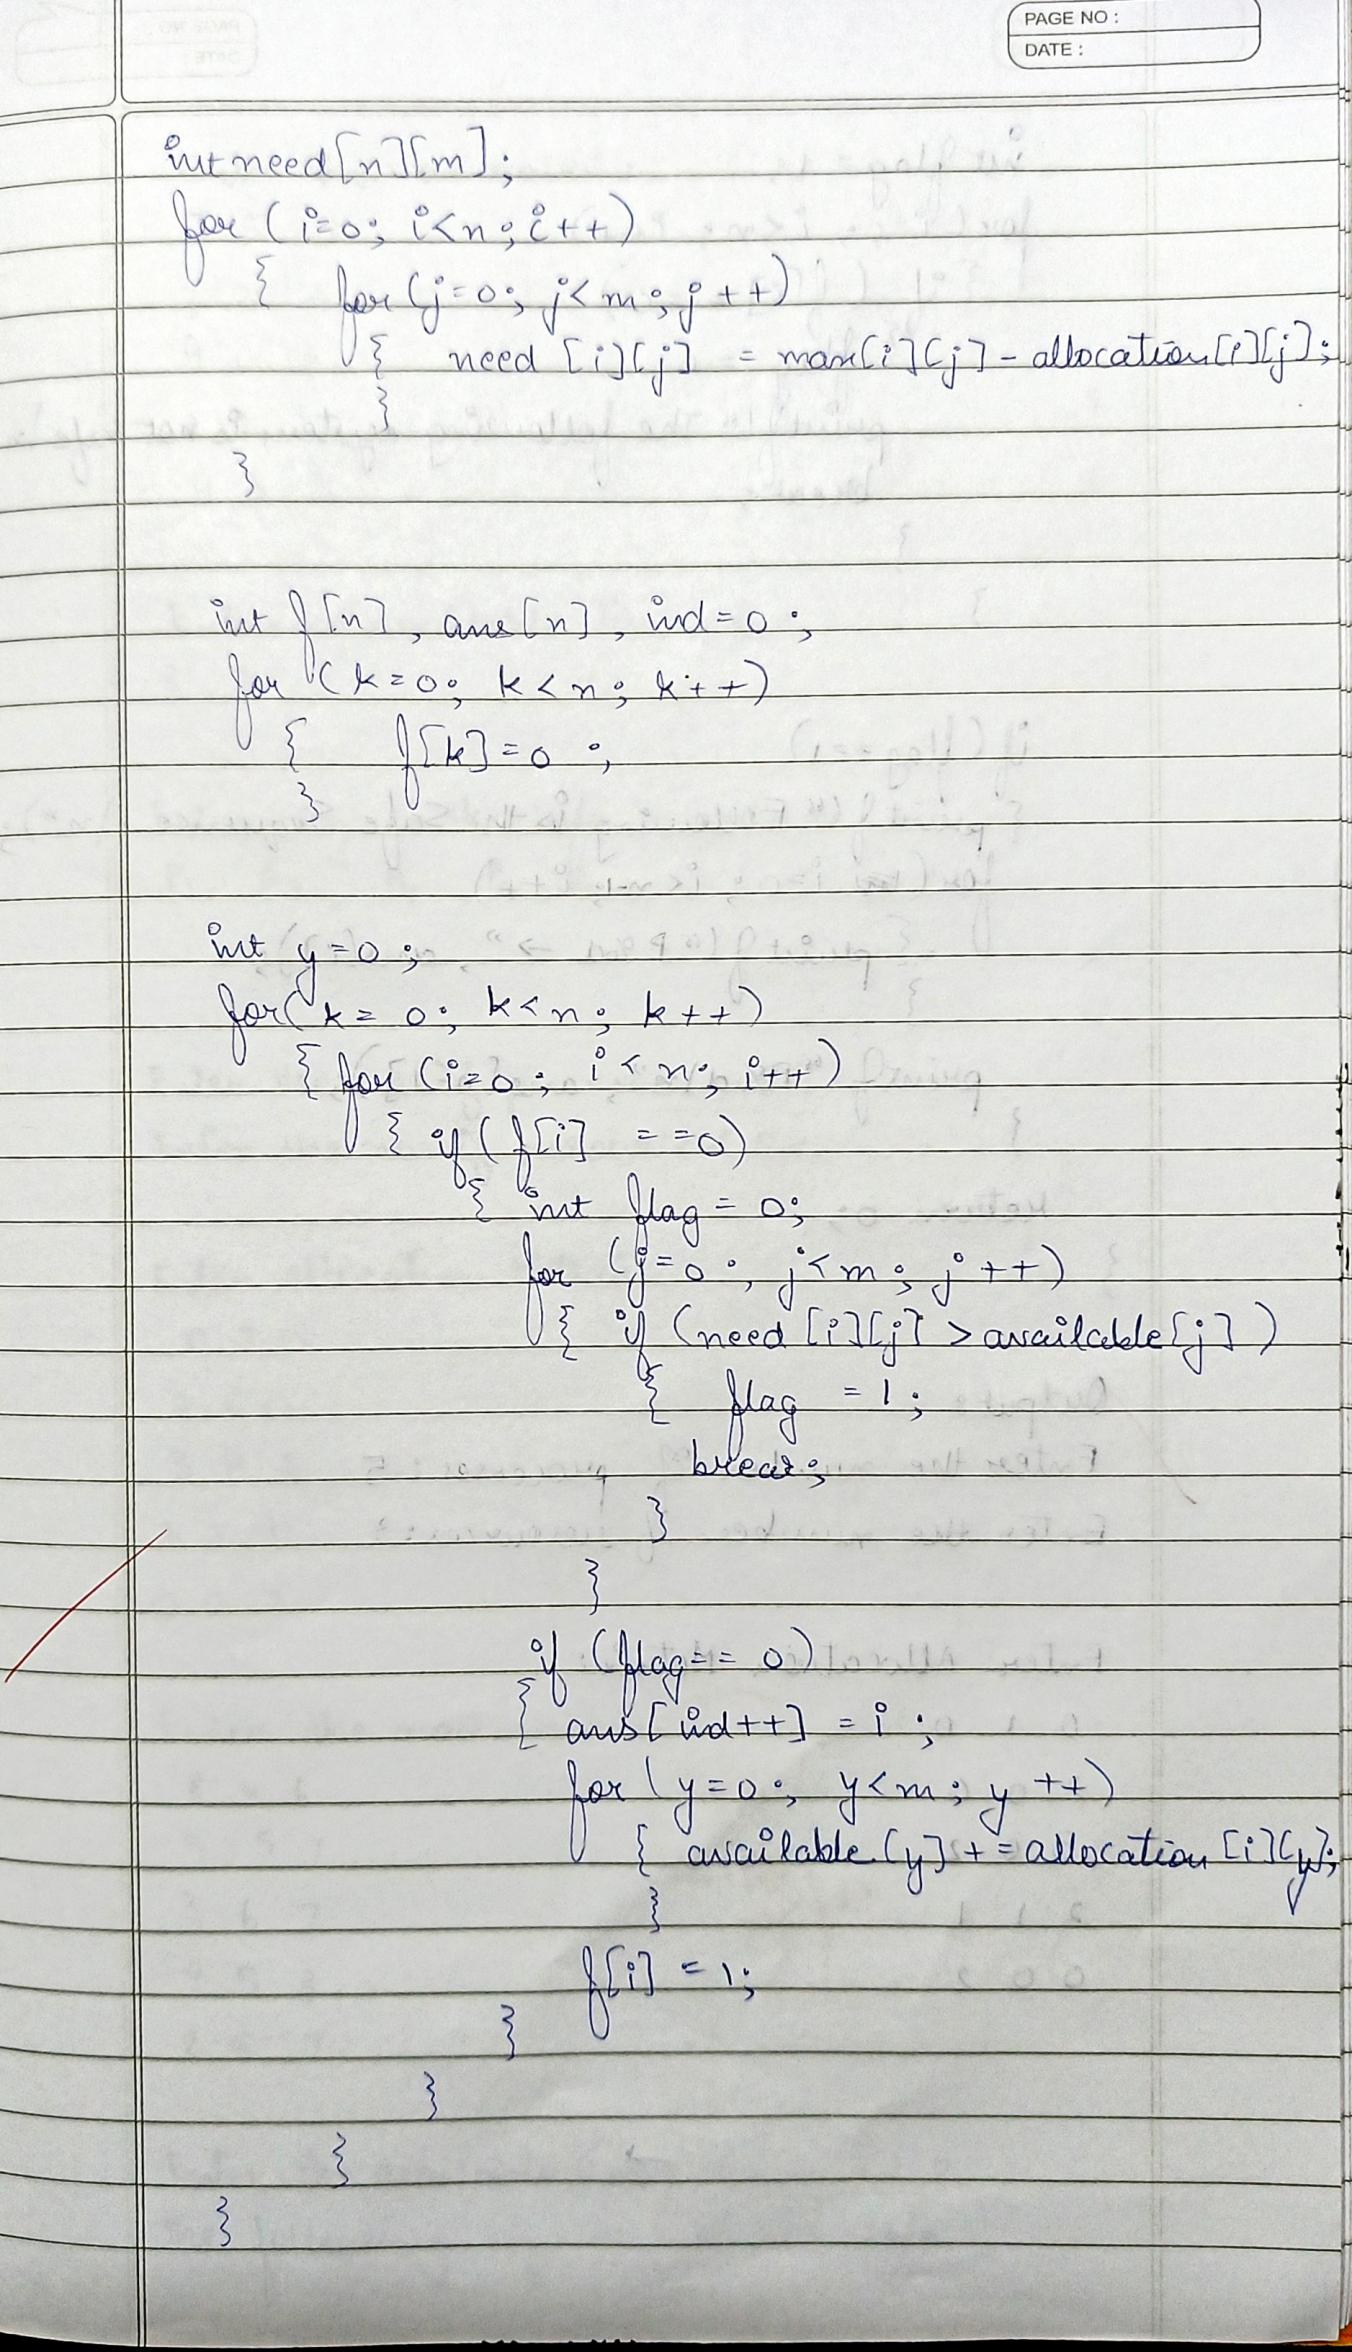 PAGE NO :
DATE :
int need[n][m];
for (i=0; i<n; i++)
{ for (j=0; j<m; j++)
{ need [i][j] = max[i][j] - allocation[i][j];
}
}
int f[n], ans[n], ind=0;
for (k=0; k<n; k++)
{ f[k]=0 ;
}
int y=0;
for( k= 0; k<n; k++)
{ for (i=0; i<n; i++)
{ if ( f[i] ==0)
{ int flag = 0;
for (j=0; j<m; j++)
{ if (need [i][j] > available[j])
{ flag = 1;
break;
}
}
if (flag== 0)
{ ans[ ind++] = i ;
for ( y=0; y<m; y ++)
{ available [y] += allocation [i][y];
}
f[i] = 1;
}
}
}
}